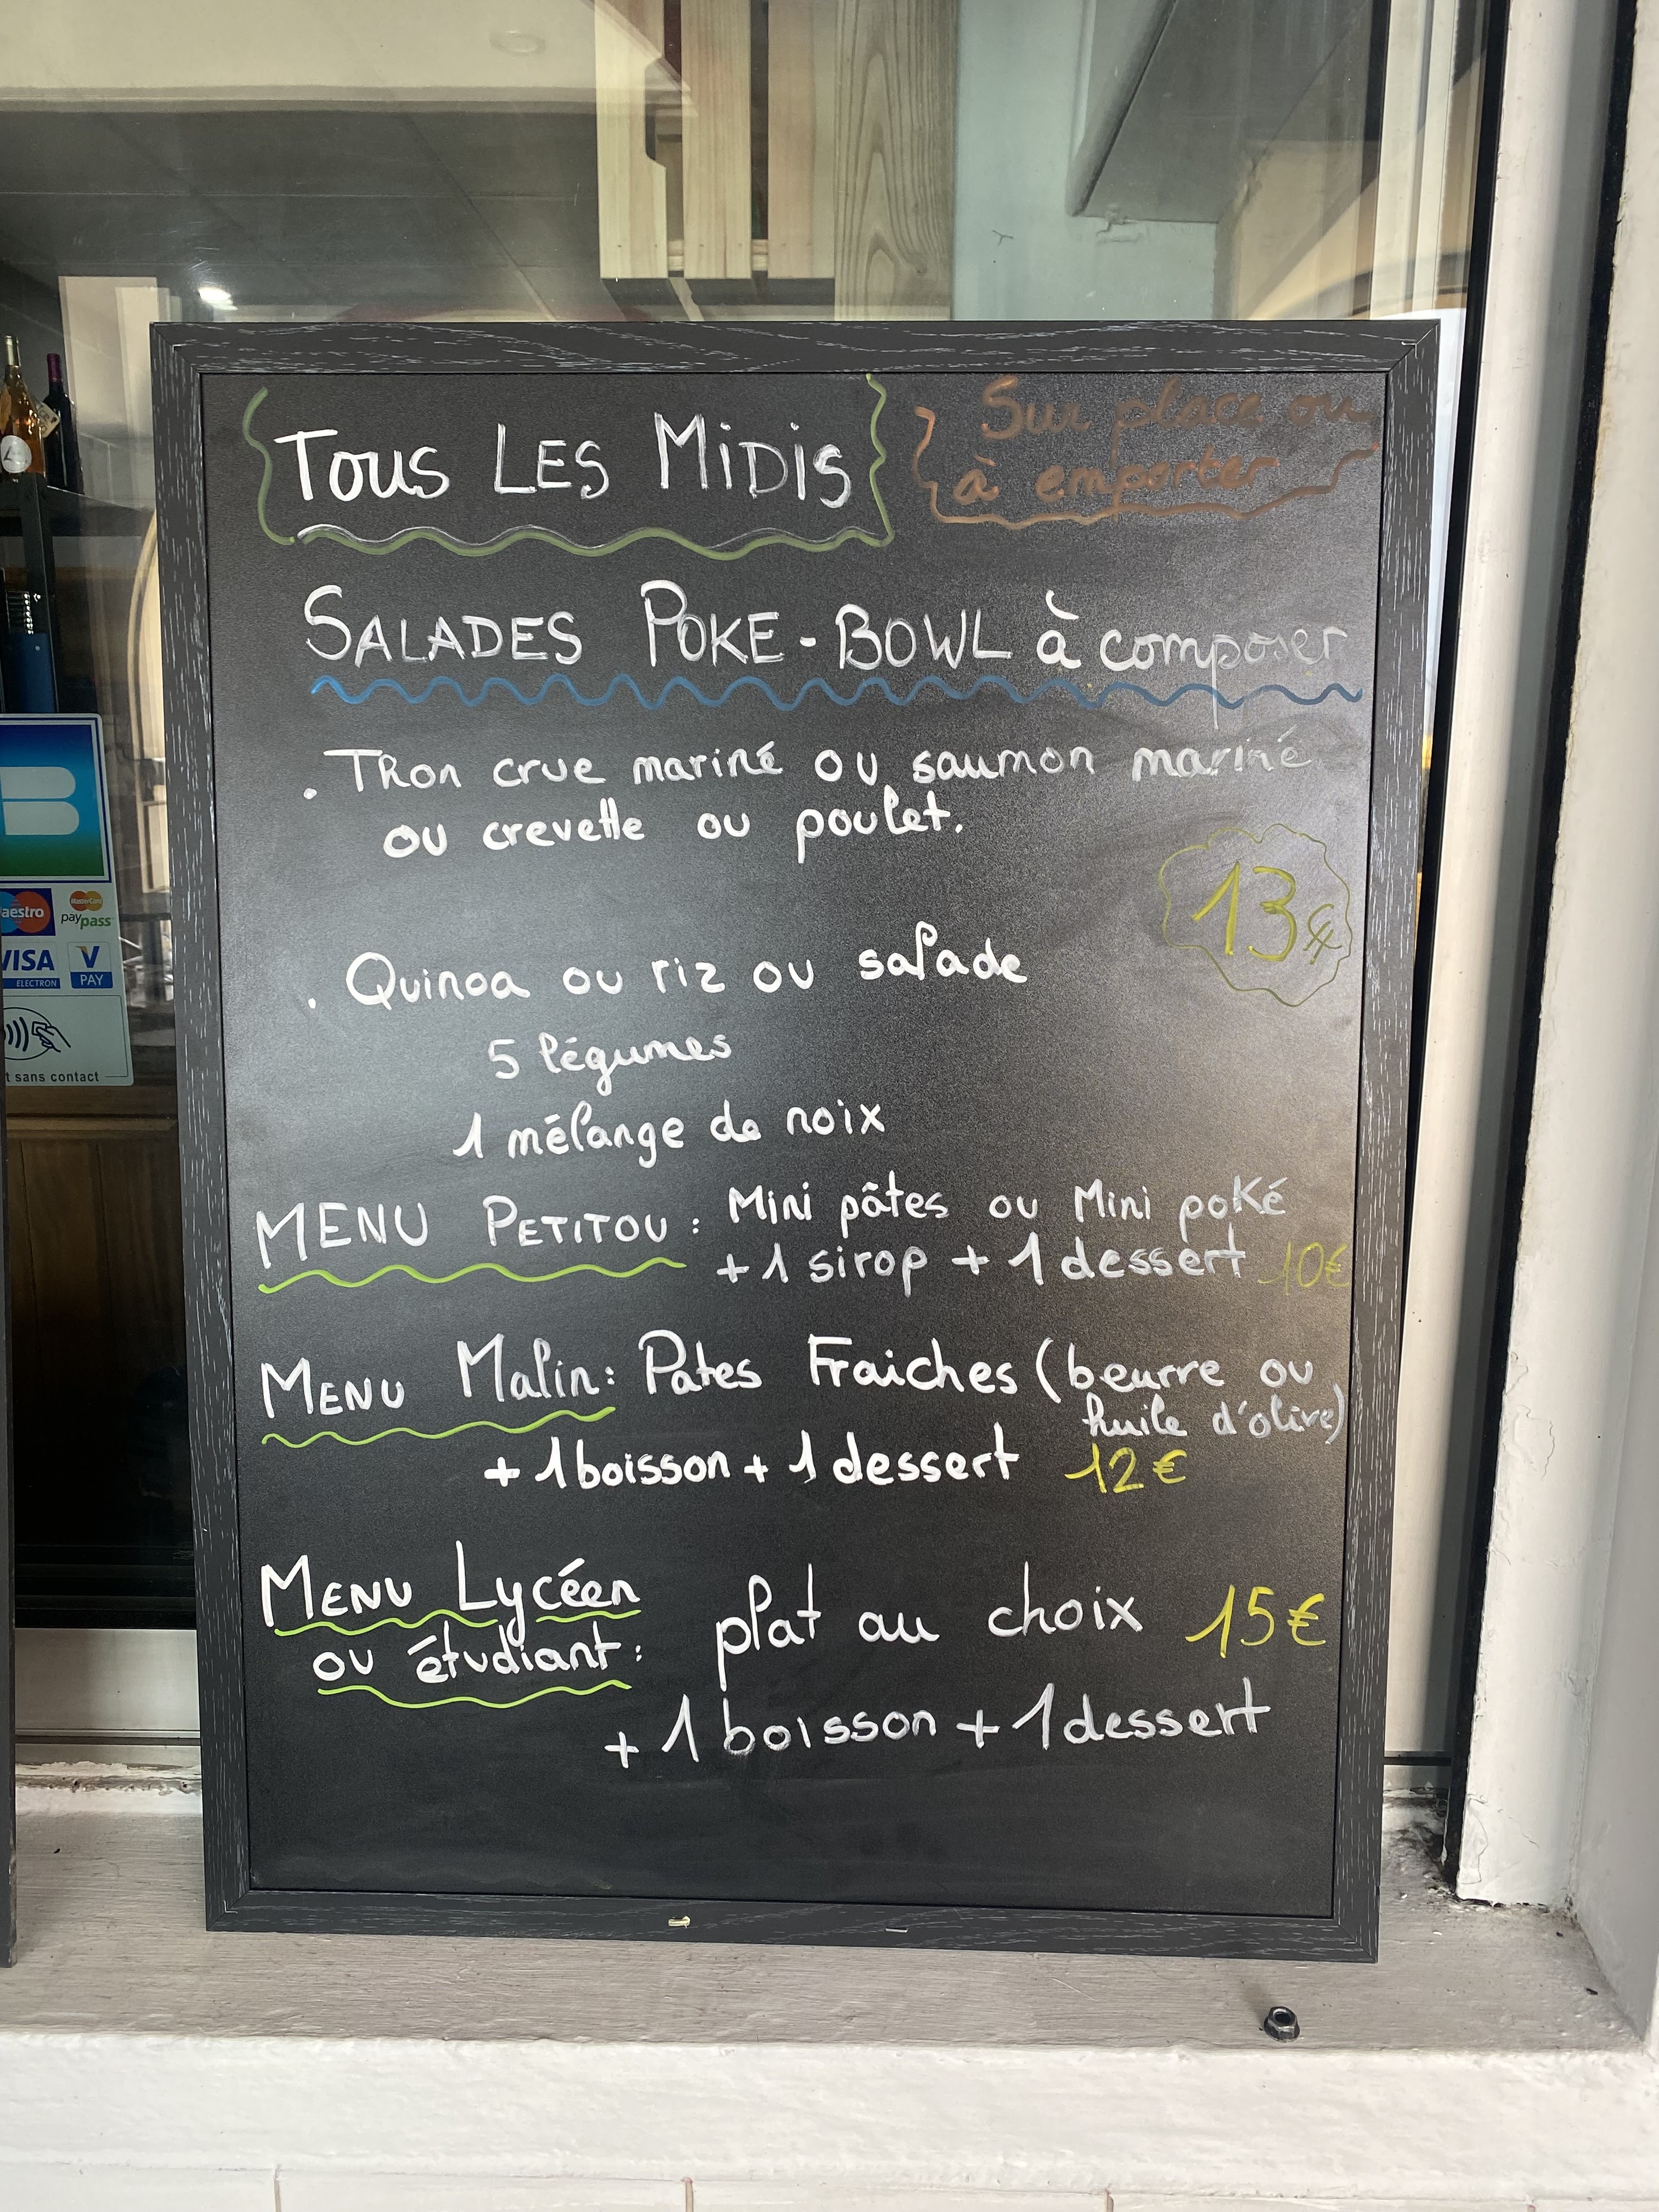 Tous LES MiDis
Sur place ou
à emporter
SALADES POKE-BOWL à composer
. Thon crue mariné ou saumon mariné
ou crevette ou poulet.
13€
. Quinoa ou riz ou salade
5 légumes
1 mélange de noix
MENU PETITOU : Mini pâtes ou Mini poké
+ 1 sirop + 1 dessert 10€
MENU Malin: Pates Fraiches (beurre ou
huile d'olive)
+ 1 boisson + 1 dessert 12€
MENU Lycéen
ou étudiant: plat au choix 15€
+ 1 boisson + 1 dessert
aestro
MasterCard
paypass
VISA
ELECTRON
V
PAY
t sans contact